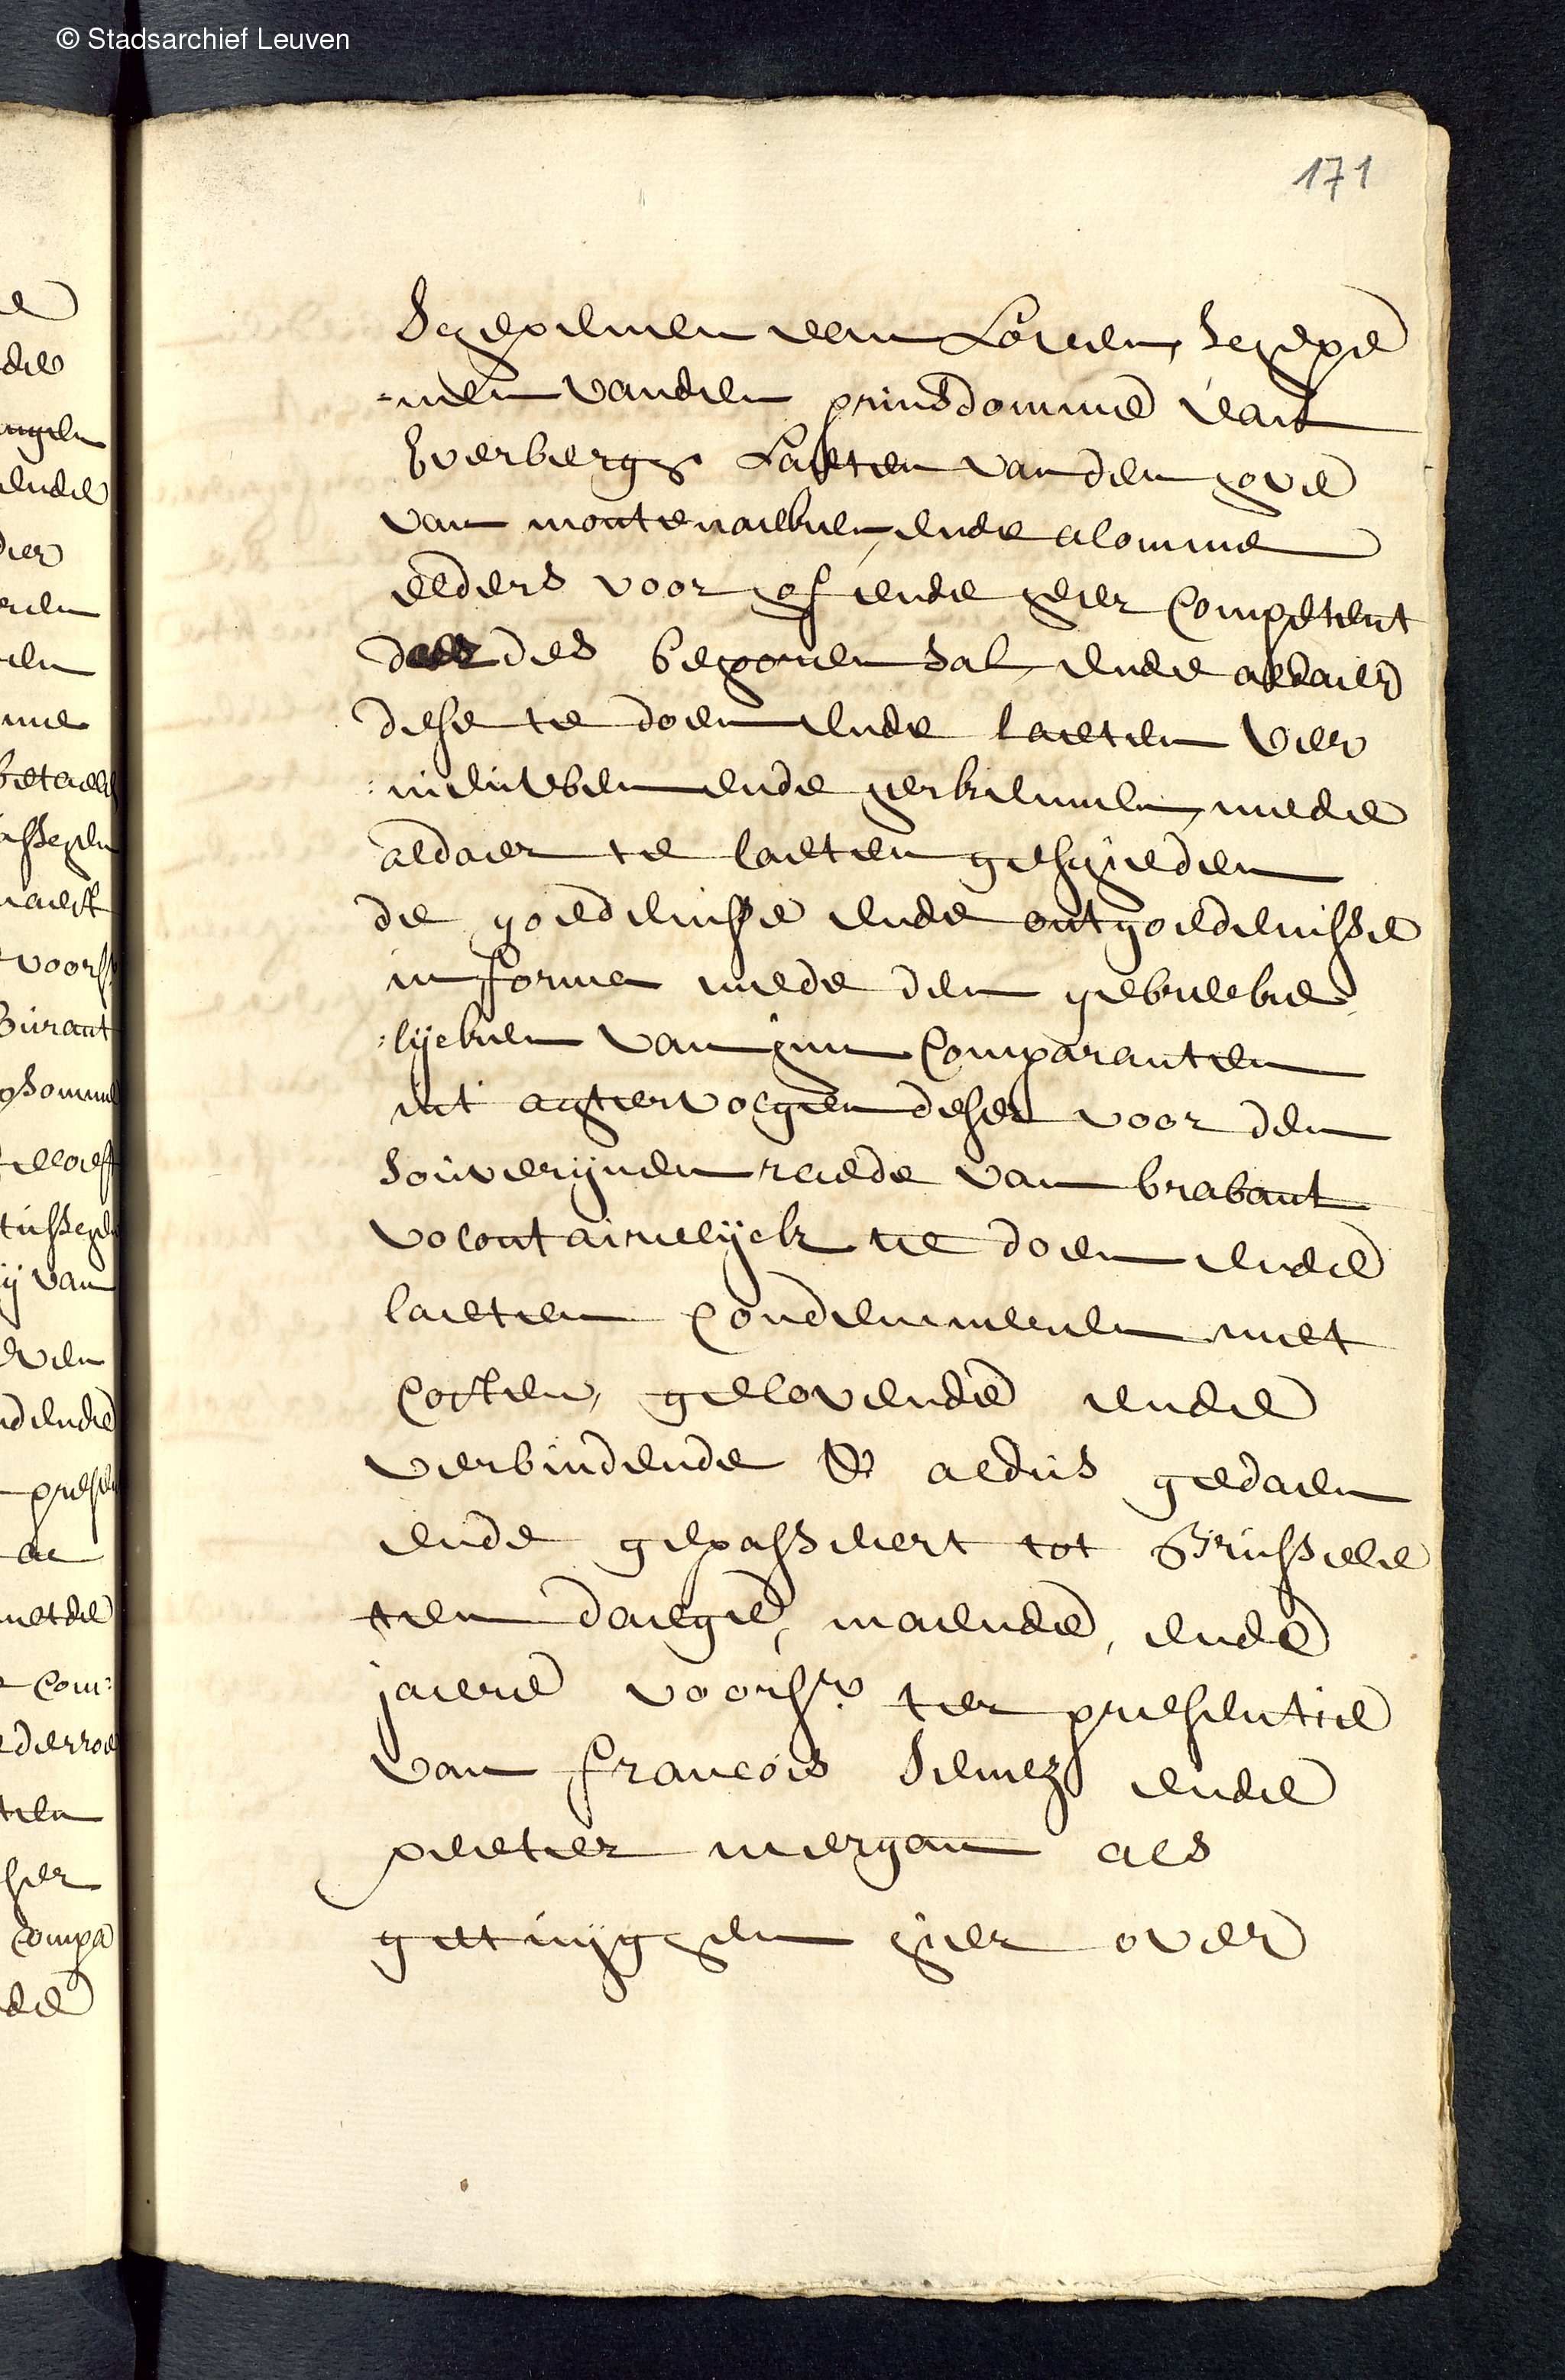 © Stadsarchief Leuven
171
Schepenen van Loven, schepe
-nen vanden prinsdomme van
Everbergh Laeten vanden hove
van montenaeken, ende alomme
elders voor hof ende heer competent
daer des behooren sal, ende aldaer
dese te doen ende laeten ver
:nieuwen ende herkennen, mede
aldaer te laeten geschieden
de goedenisse ende ontgoedenisse
in forma mede den gebreke
:lijcken van hun Comparanten
int achtervolgen deser voor den
souverijnen raede van brabant
volontairelijck te doen ende
laeten Condemneren met
Costen, gelovende ende
verbindende &a aldus gedaen
ende gepasseert tot Brussele
ten daeghe, maende, ende
jaere voorsr. ter presentie
van francois Semez ende
peeter mergan als
getuijghen hier over